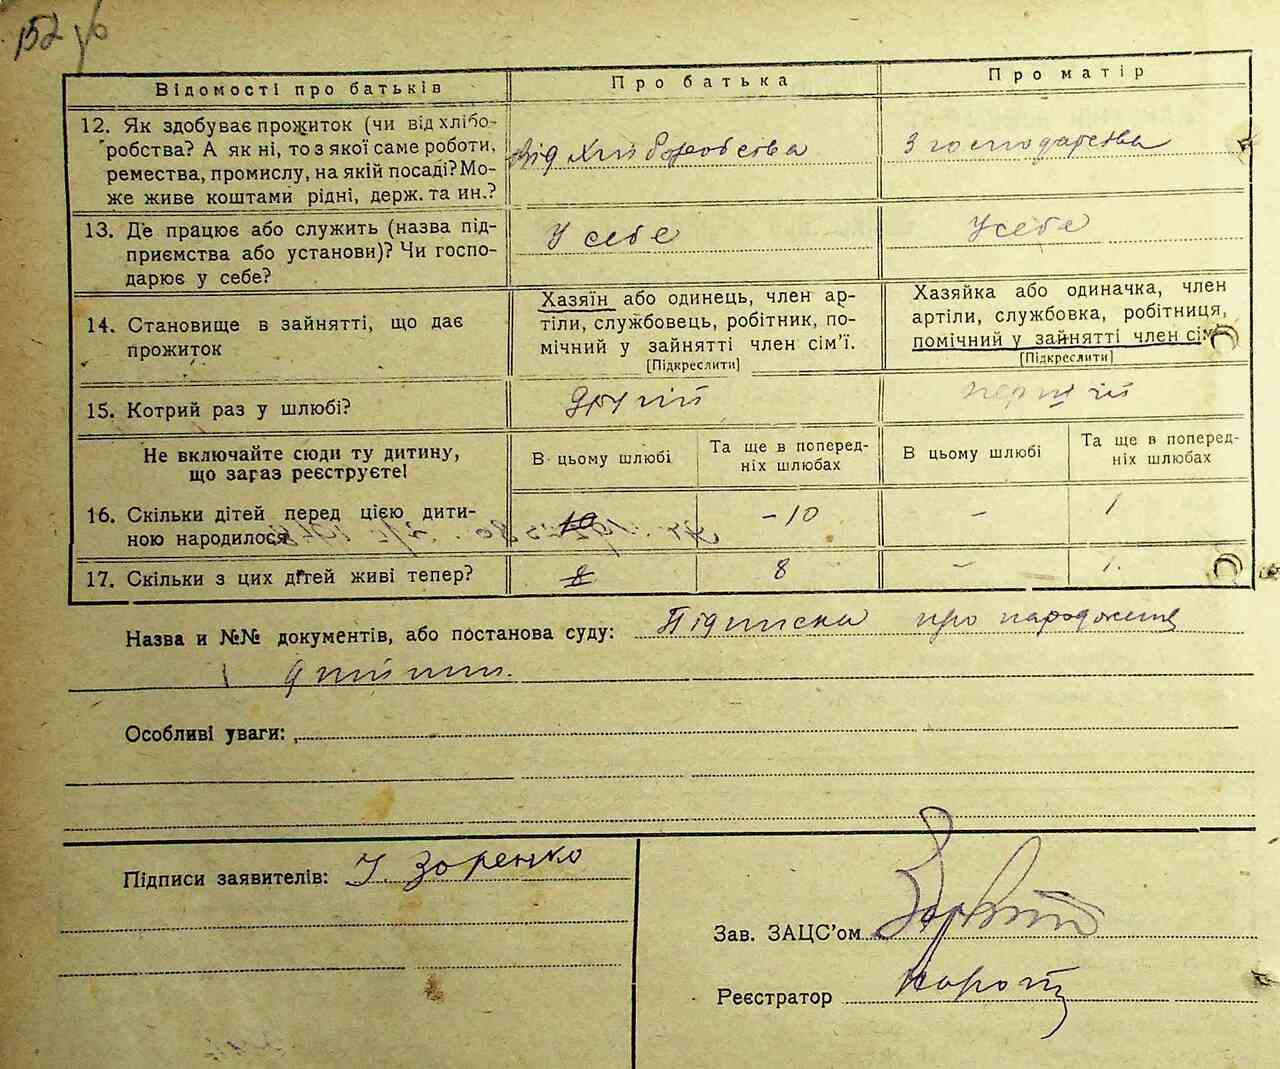 Відомості про батьків
Про батька
Про матір
12. Як здобуває прожиток (чи від хлібо-
робства? А як ні, то з якої саме роботи,
ремества, промислу, на якій посаді? Мо-
же живе коштами рідні, держ. та ин.?
від хліборобства
З господарства
13. Де працює або служить (назва під-
приємства або установи)? Чи госпо-
дарює у себе?
У себе
У себе
14. Становище в зайнятті, що дає
прожиток
Хазяїн або одинець, член ар-
тіли, службовець, робітник, по-
мічний у зайнятті член сім’ї.
[Підкреслити]
Хазяйка або одиначка, член
артіли, службовка, робітниця,
помічний у зайнятті член сім’
[Підкреслити]
15. Котрий раз у шлюбі?
другий
перший
Не включайте сюди ту дитину,
що зараз реєструєте!
В цьому шлюбі
Та ще в поперед-
ніх шлюбах
В цьому шлюбі
Та ще в поперед-
ніх шлюбах
16. Скільки дітей перед цією дити-
ною народилося
10
-10
-
1
17. Скільки з цих дітей живі тепер?
8
8
-
1.
Назва и №№ документів, або постанова суду: Підписка про народження
дитини.
Особливі уваги:
Підписи заявителів: У. Зоренко
Зав. ЗАЦС’ом
Реєстратор